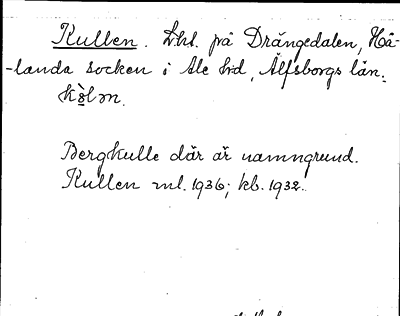 Kullen. Lht. på Drängedalen, Hå-
-landa socken i Ale hd, Älfsborgs län.
Bergkulle där är namngrund.
Kullen ml. 1936; kb. 1932.